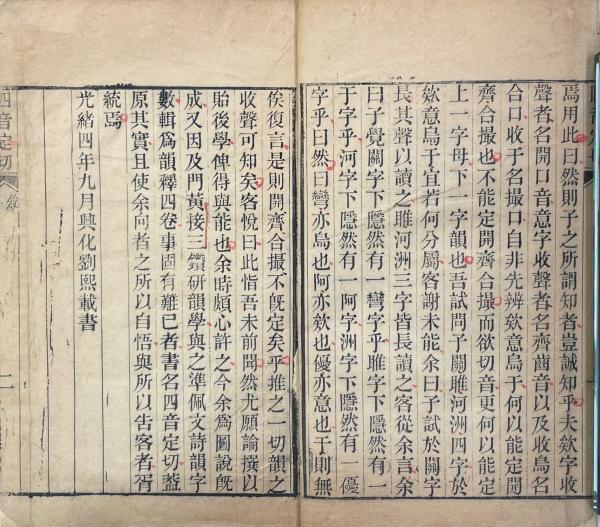 焉用此曰然則子之所謂知者豈誠知乎夫欸字收
聲者名開口音意字收聲者名齊齒音以及收烏名
合口收于名撮口自非先辨欸意烏于何以能定開
齊合撮也不能定開齊合撮而欲切音更何以能定
上一字母下一字韻也吾試問子關雎河洲四字於
欸意烏于宜若何分屬客謝未能余曰子試於關字
長其聲以讀之雎河洲三字皆長讀之客從余言余
曰子覺關字下隱然有一彎字乎雎字下隱然有一
于字乎河字下隱然有一阿字洲字下隱然有一優
字乎曰然曰彎亦烏也阿亦欸也優亦意也于則無
俟復言是則開齊合撮不既定矣乎推之一切韻之
收聲可知矣客悅曰此恉吾未前聞然尤願論撰以
貽後學俾得與能也余時頗心許之今余為圖說旣
成又因及門黃接三鑽研韻學與之準佩文詩韻字
數輯爲韻釋四卷事固有難已者書名四音定切蓋
原其實且使余向者之所以自悟與所以告客者胥
統焉
光緒四年九月興化劉熙載書
四音定切